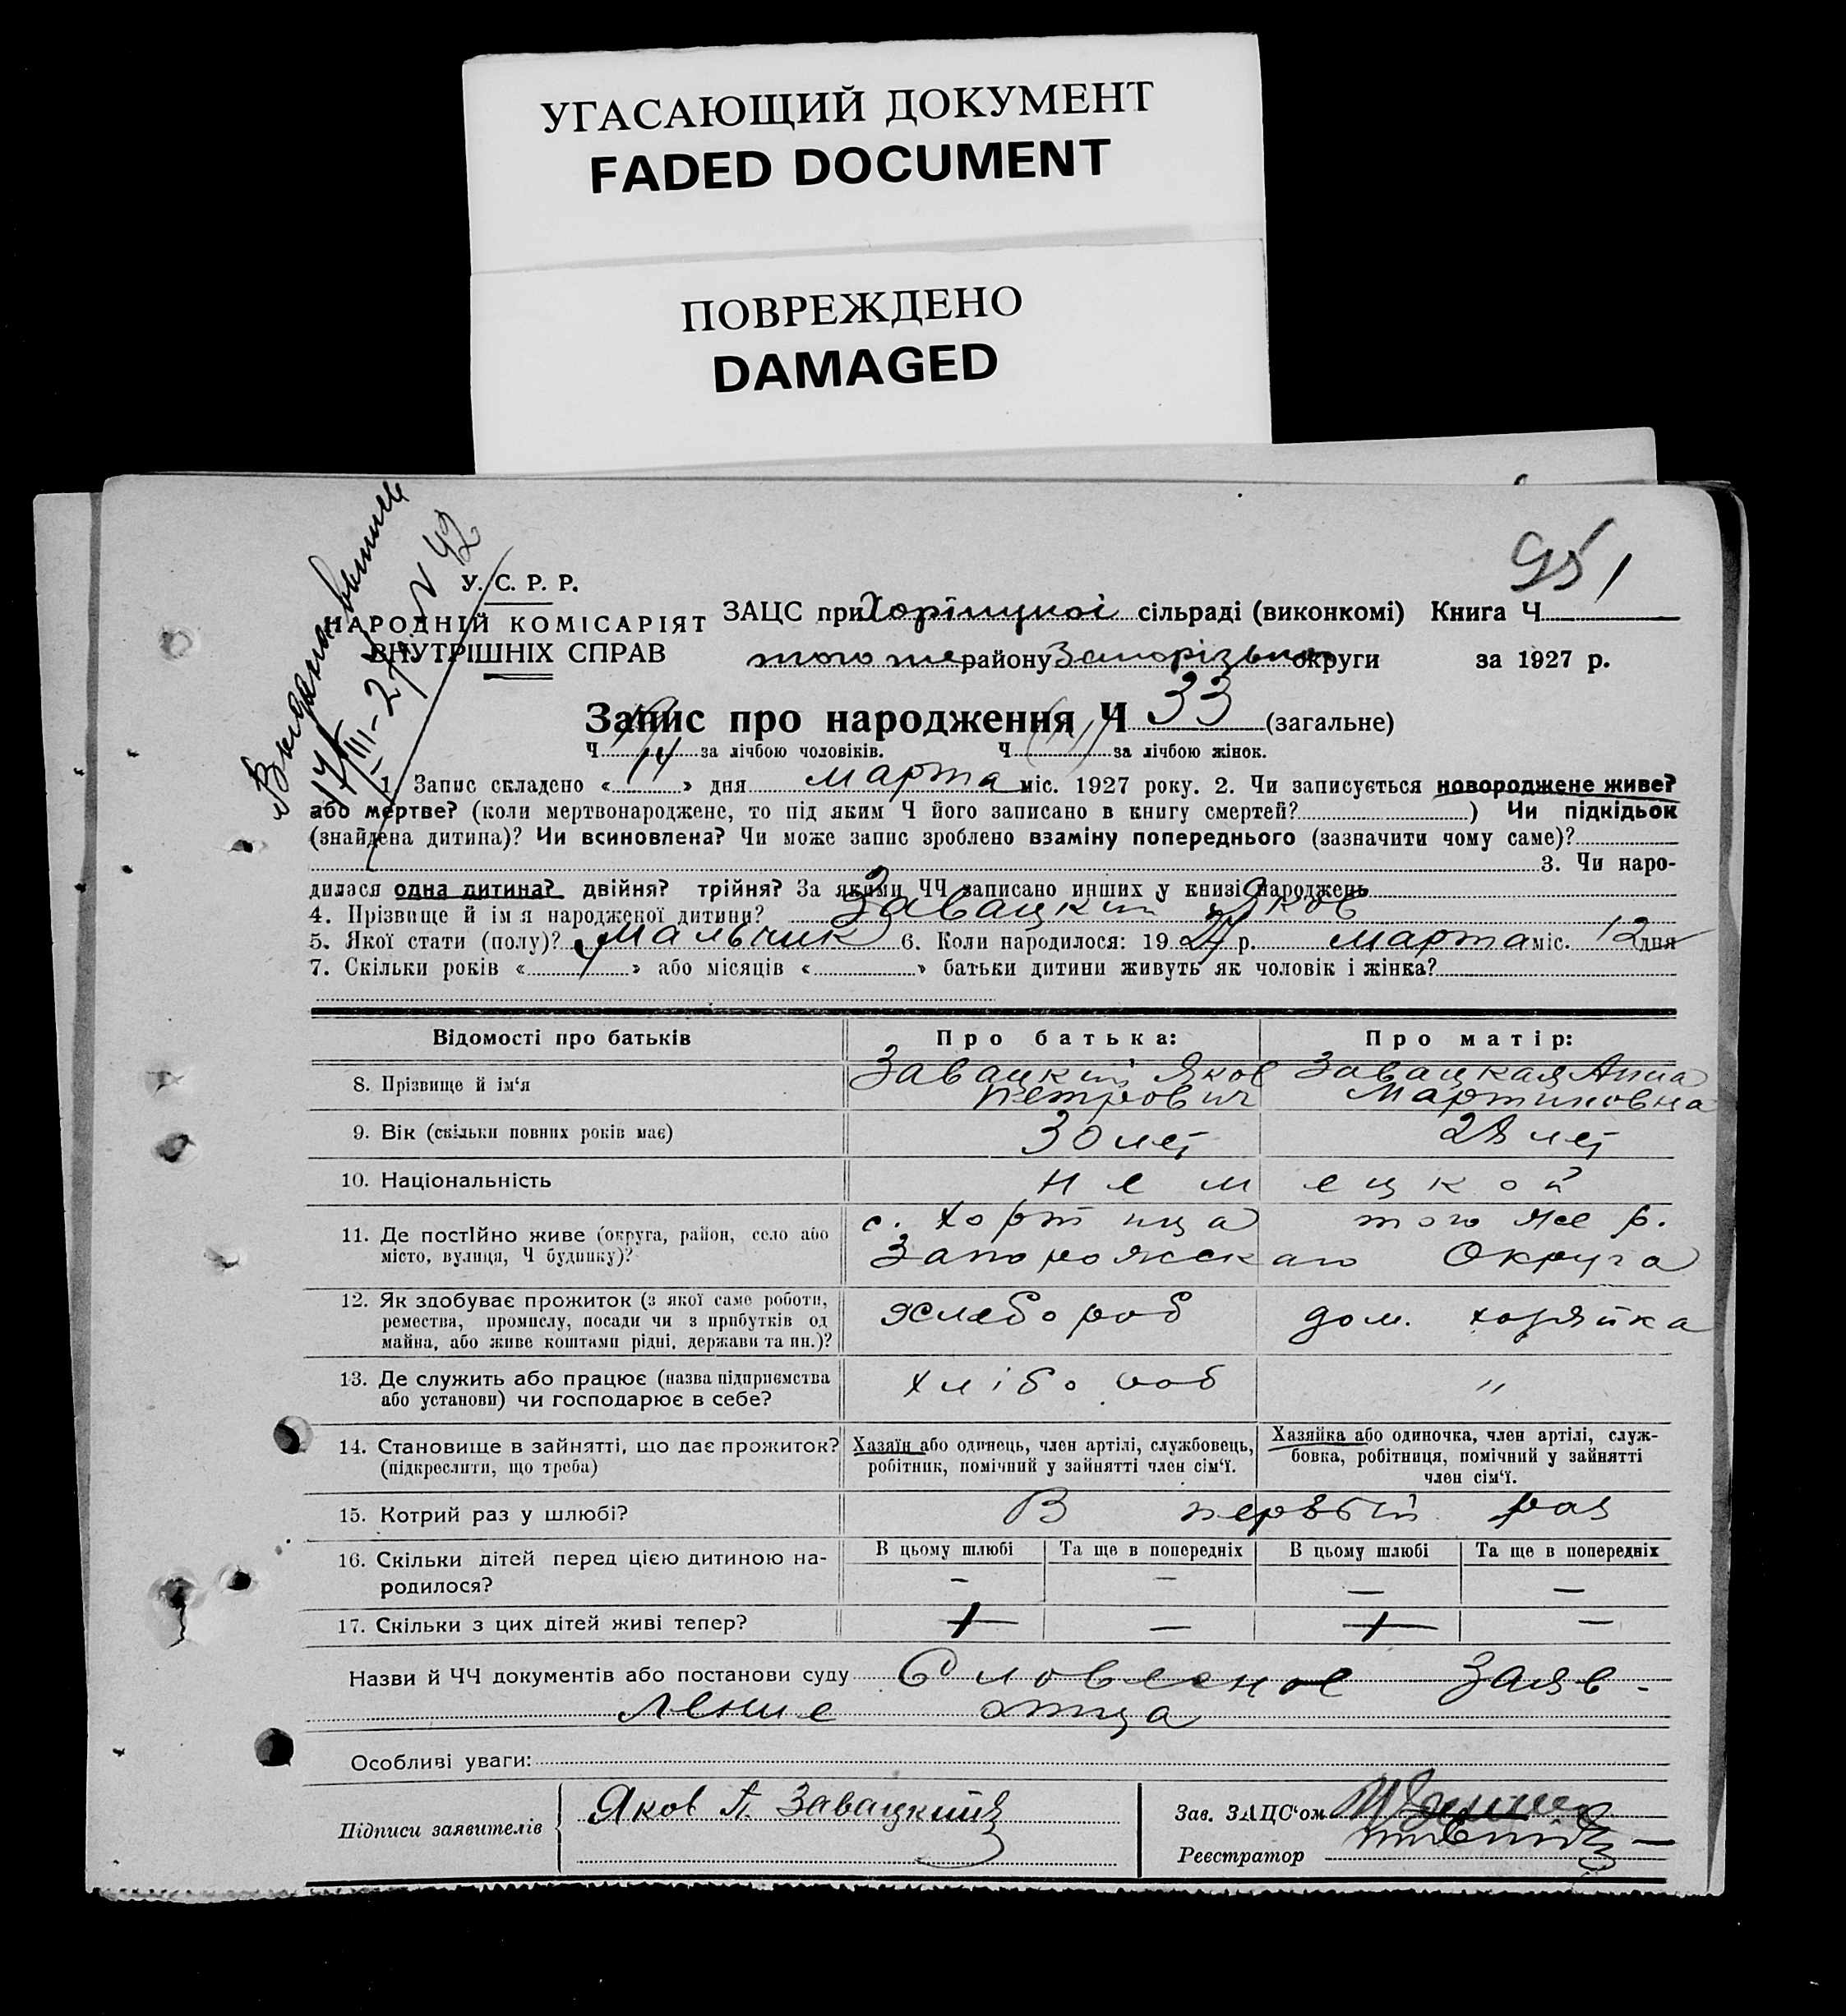 УГАСАЮЩИЙ ДОКУМЕНТ
FADED DOCUMENT
ПОВРЕЖДЕНО
DAMAGED
95 1
17/III-27 N 42
У. С. Р. Р.
НАРОДНІЙ КОМІСАРІЯТ
ВНУТРІШНІХ СПРАВ
ЗАЦС при Хортицкоі сільраді (виконкомі) Книга Ч
того же району Запорізько округи за 1927 р.
Запис про народження Ч 33 (загальне)
Ч за лічбою чоловіків. Ч за лічбою жінок.
1. Запис складено « 14 » дня марта міс. 1927 року. 2. Чи записується новороджене живе?
або мертве? (коли мертвонароджене, то під яким Ч його записано в книгу смертей? ) Чи підкідьок
(знайдена дитина)? Чи всиновлена? Чи може запис зроблено взаміну попереднього (зазначити чому саме)?
3. Чи наро-
дилася одна дитина? двійня? трійня? За якими ЧЧ записано инших у книзі народжень
4. Прізвище й ім я народженої дитини? Завацкий Яков
5. Якої стати (полу)? Мальчик 6. Коли народилося: 19 27 р. марта міс. 12 дня
7. Скільки років « 4 » або місяців « » батьки дитини живуть як чоловік і жінка?
Відомості про батьків Про батька: Про матір:
8. Прізвище й ім‘я Завацкий Яков Завацкая Анна
Петрович Мартиновна
9. Вік (скільки повних років має) 30 лет 28 лет
10. Національність немецкой
11. Де постійно живе (округа, район, село або с. Хортица того же р.
місто, вулиця, Ч будинку)? Запорожскаго Округа
12. Як здобуває прожиток (з якої саме роботи,
ремества, промислу, посади чи з прибутків од хлебороб дом. хозяйка
майна, або живе коштами рідні, держави та ин.)?
13. Де служить або працює (назва підприємства хлібороб "
або установи) чи господарює в себе?
14. Становище в зайнятті, що дає прожиток?
(підкреслити, що треба)
Хазяїн або одинець, член артілі, службовець,
робітник, помічний у зайнятті член сім‘ї.
Хазяйка або одиночка, член артілі, служ-
бовка, робітниця, помічний у зайнятті
член сім‘ї.
15. Котрий раз у шлюбі? В первый раз
16. Скільки дітей перед цією дитиною на- В цьому шлюбі Та ще в попередніх В цьому шлюбі Та ще в попередніх
родилося? - - - -
17. Скільки з цих дітей живі тепер? + - + -
Назви й ЧЧ документів або постанови суду Словесное Заяв-
ление отца
Особливі уваги:
Підписи заявителів Яков П. Завацкий
Зав. ЗАЦС‘ом
Реєстратор